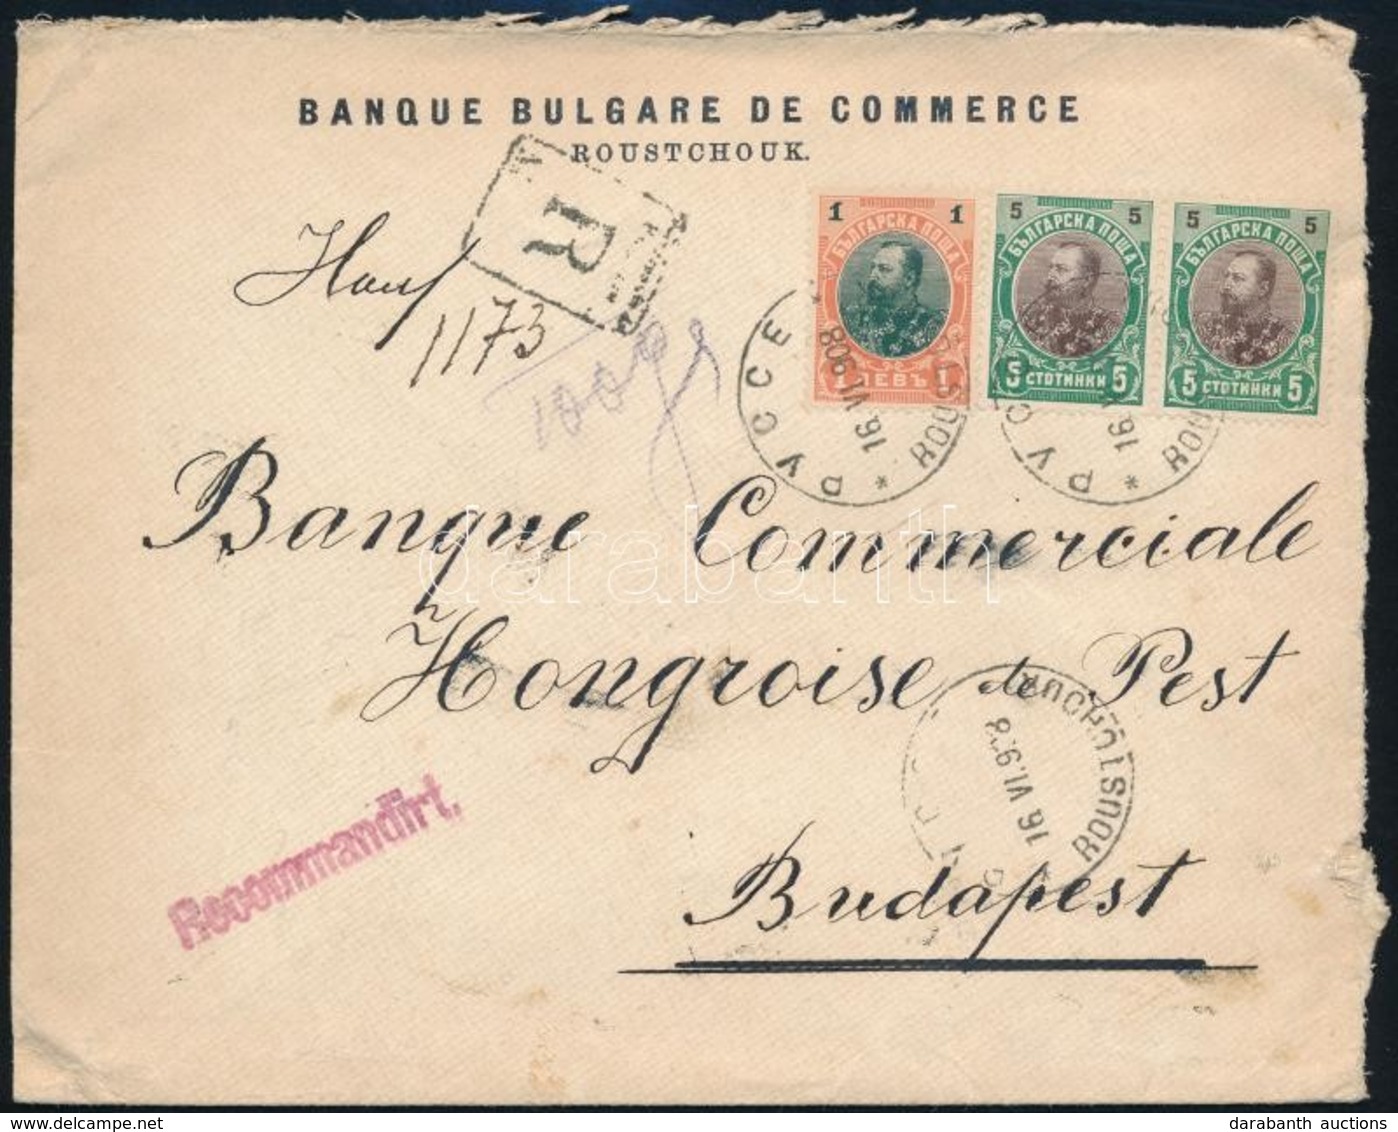 BANQUE BULGARE DE COMMERCE
ROUSTCHOUK.
R
1173
100
1 1
БЪЛГАРСКА ПОЩА
1 ЛЕВЪ 1
5 5
БЪЛГАРСКА ПОЩА
5 СТОТИНКИ 5
5 5
БЪЛГАРСКА ПОЩА
5 СТОТИНКИ 5
РУССЕ * ROUST
16 VI 908
РУСС * ROU
16 V
Banque Commerciale
Hongroise de Pest
Budapest
ROUSTCHOUK
16 VI.908
Recommandirt.
darabanth
darabanth auctions